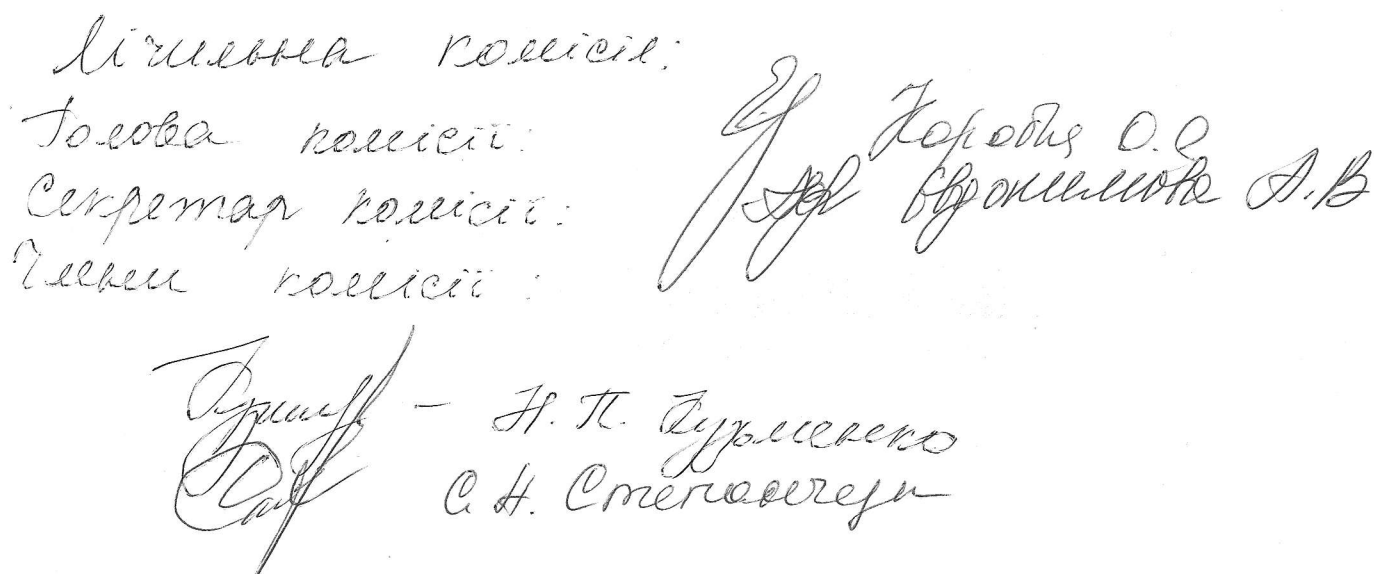 Лічильна комісія:
Голова комісії: Коробка О.О
Секретар комісії: Євдокимова А.В
Члени комісії:
– Н. П. Кузьменко
С. Н. Степанчук